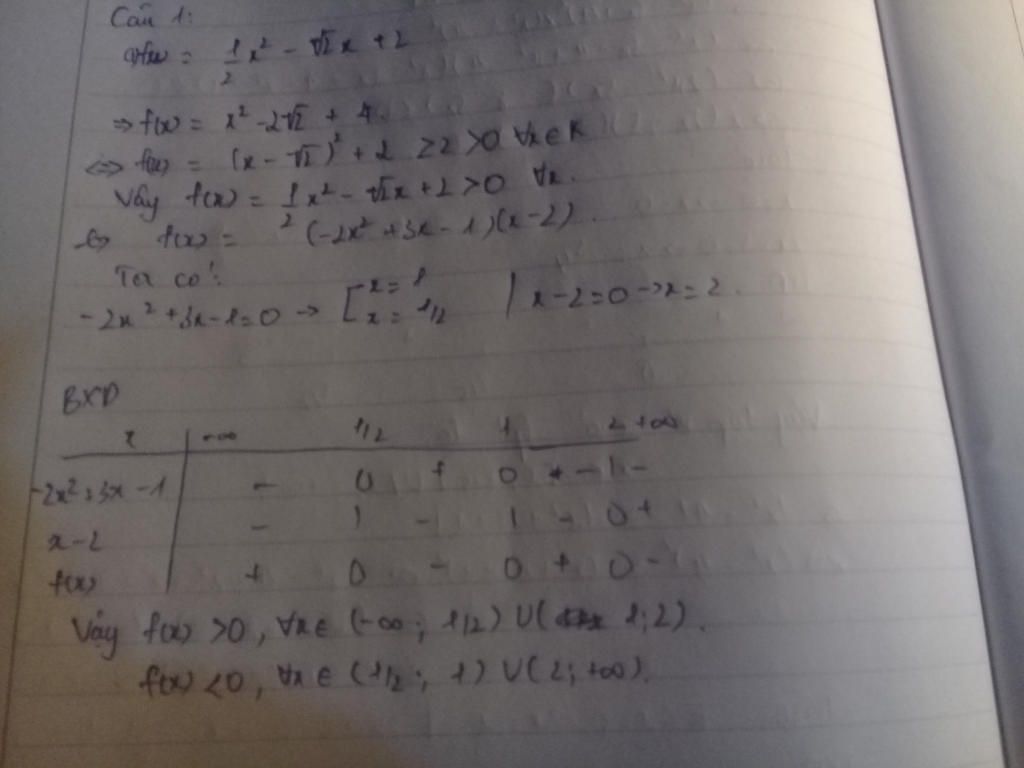 Câu 1:
a) f(x) = 1/2 x² - √2x + 2
⇒ f(x) = x² - 2√2 + 4.
⇔ f(x) = (x - √2)² + 2 ≥ 2 > 0 ∀x ∈ R
Vậy f(x) = 1/2 x² - √2x + 2 > 0 ∀x.
b) f(x) = (-2x² + 3x - 1)(x - 2).
Ta có:
-2x² + 3x - 1 = 0 → [ x = 1 x = 1/2 | x - 2 = 0 → x = 2.
BXD
x | -∞ 1/2 1 2 +∞
-2x² + 3x - 1 | - 0 + 0 - | -
x - 2 - | - | - 0 +
f(x) + 0 - 0 + 0 -
Vậy f(x) > 0, ∀x ∈ (-∞; 1/2) ∪ ( 1; 2).
f(x) < 0, ∀x ∈ (1/2; 1) ∪ (2; +∞).